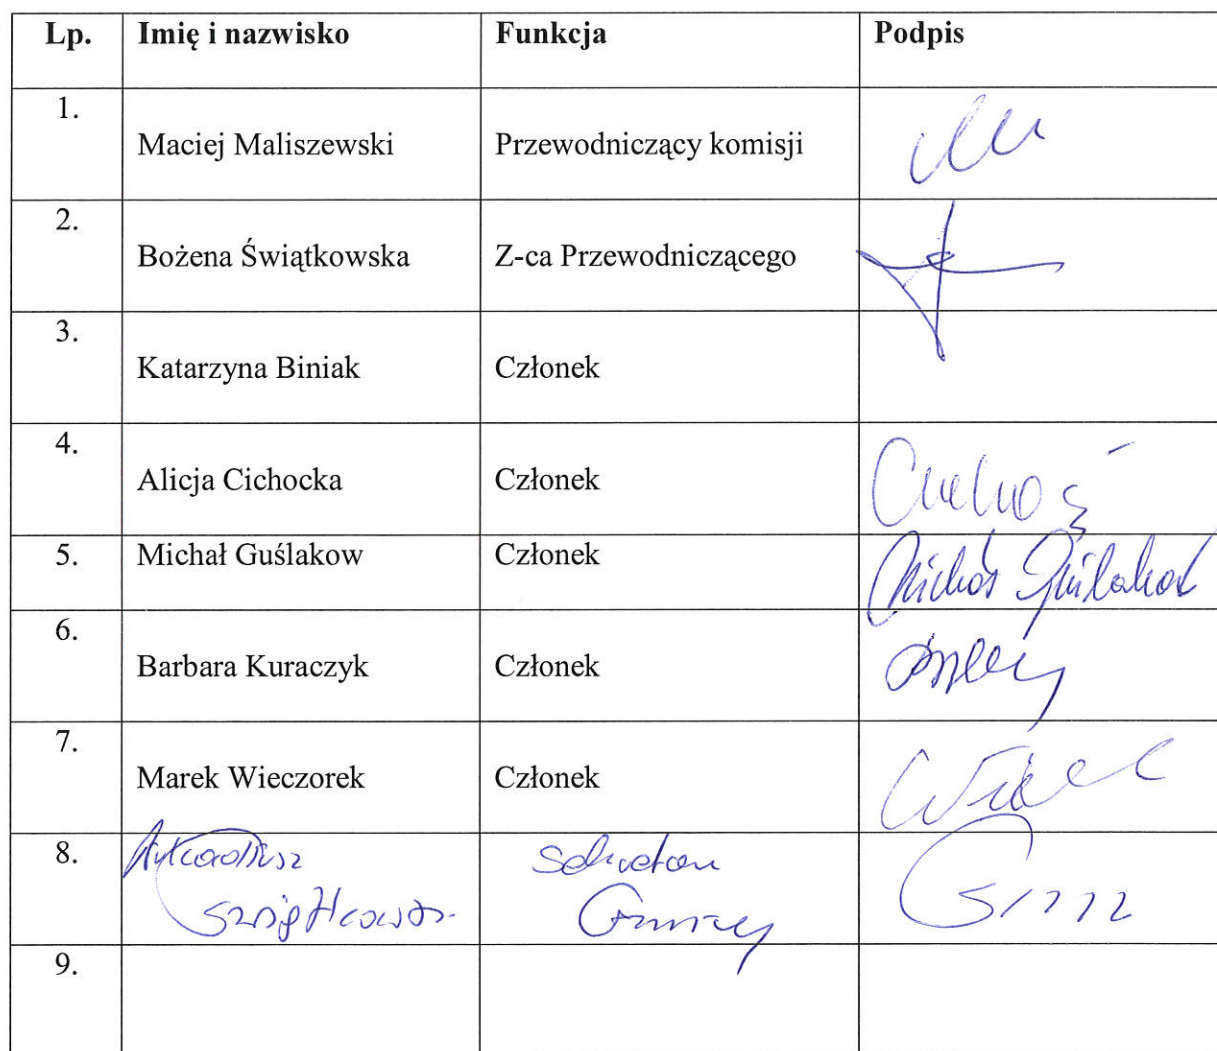 Lp. Imię i nazwisko Funkcja Podpis
1. Maciej Maliszewski Przewodniczący komisji
2. Bożena Świątkowska Z-ca Przewodniczącego
3. Katarzyna Biniak Członek
4. Alicja Cichocka Członek
5. Michał Guślakow Członek Michał Guślakow
6. Barbara Kuraczyk Członek
7. Marek Wieczorek Członek
8. Arkadiusz Sekretarz
Gminy
9.